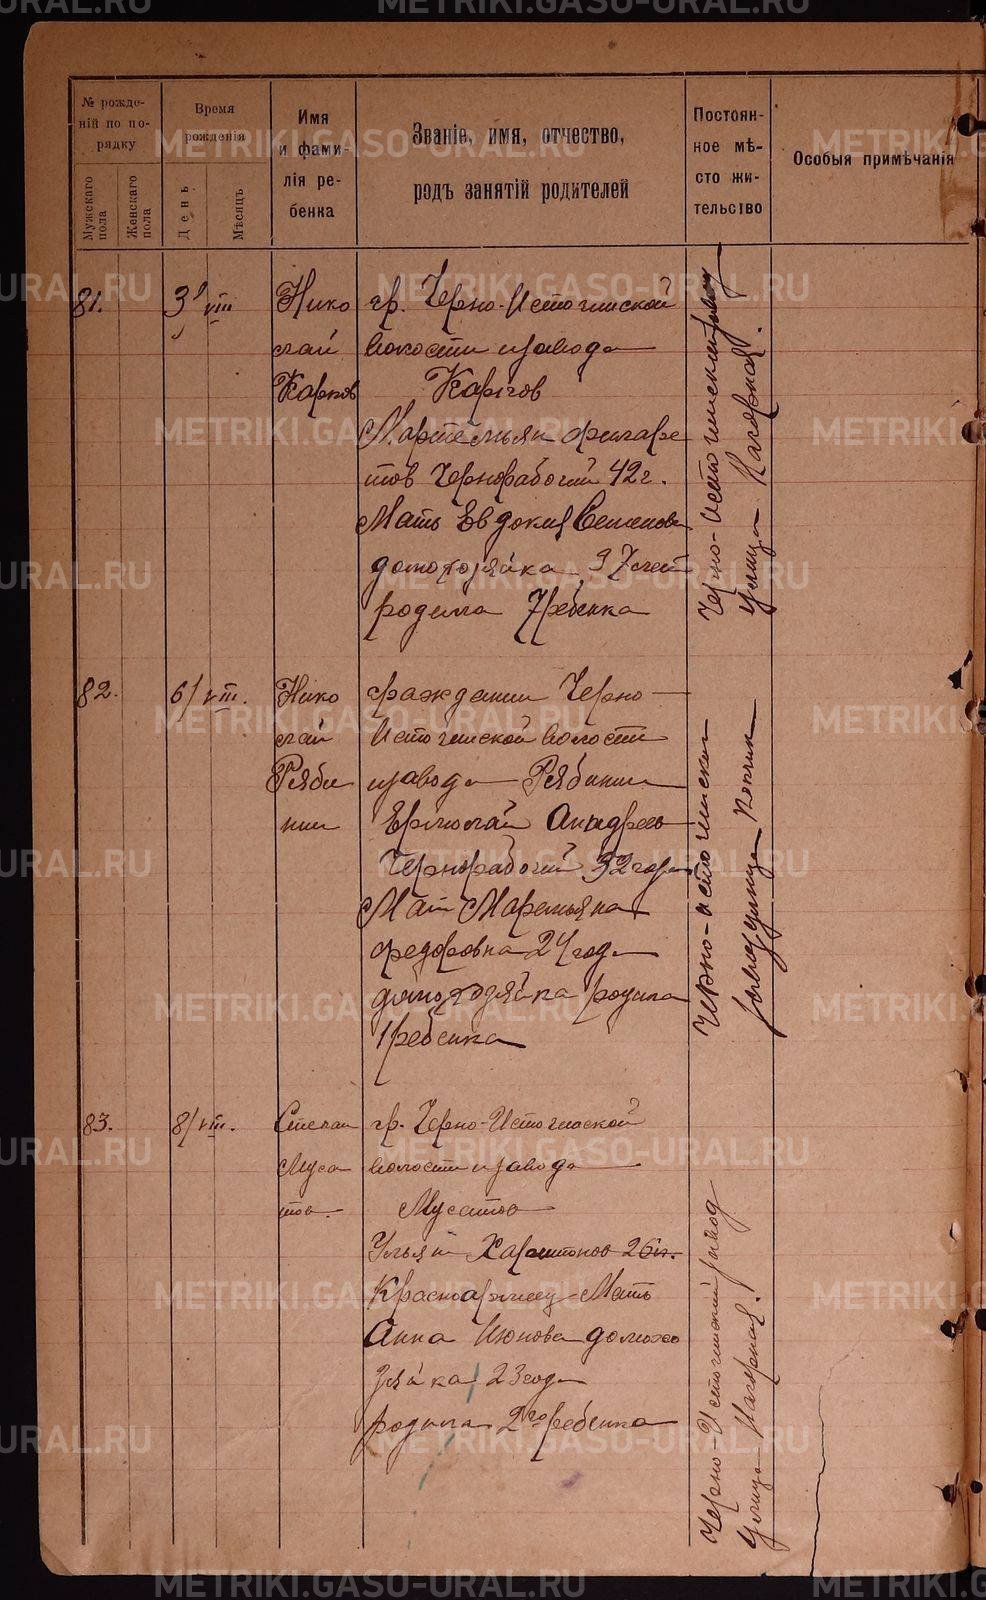 METRIKI.GASO-URAL.RU
№ рожде-
ній по по-
рядку
Мужскаго
пола
Женскаго
пола
Время
рожденія
День
Мѣсяцъ
Имя
и фами-
лія ре-
бенка
Званіе, имя, отчество,
родъ занятій родителей
Постоян-
ное мѣ-
сто жи-
тельство
Особыя примѣчанія
81.
3/VIII
Нико
лай
Карпов
гр. Черно-Источинской
волости и завода
Карпов
филаре
тов Чернорабочий 42 г.
Мать Евдокия Семенова
домохозяйка 37 лет
родила 7 ребенка
Черно-Источинский завод
улица Нагорная.
82.
6/VIII.
Нико
лай
Ряби
нин
гражданин Черно
Источинской волости
и завода Рябинин
Ермолай Андреев
Чернорабочий 32 года
Мать Маремьяна
федоровна 24 года
домохозяйка родила
1 ребенка
Черно-Источинский
завод улица
83.
8/VIII.
Степан
Муса
тов.
гр. Черно-Источинской
волости и завода
Мусатов
Ульян Харитонов 26 л.
Красноармеец Мать
Анна Июнова домохо
зяйка 23 года
родила 2го ребенка
Черно-Источинский завод
улица Нагорная.